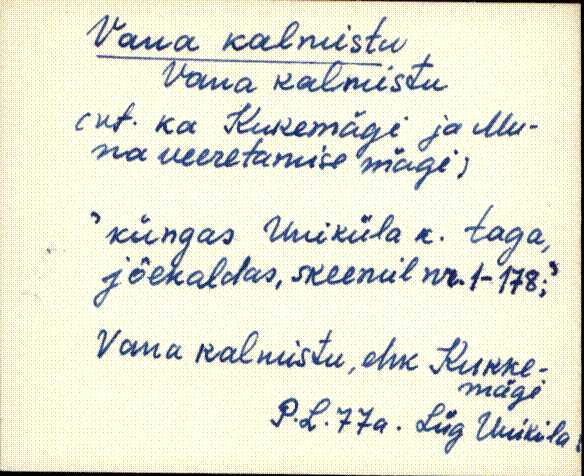 Vana kalmistu
Vana kalmistu
(vt. ka Kukemägi ja Mu-
na veeretamise mägi)
"küngas Uniküla k. taga,
jõekaldas, skeemil nr. 1-178;"
Vana kalmistu, ehk Kukke-
mägi
P.L. 77a. Lüg Uniküla